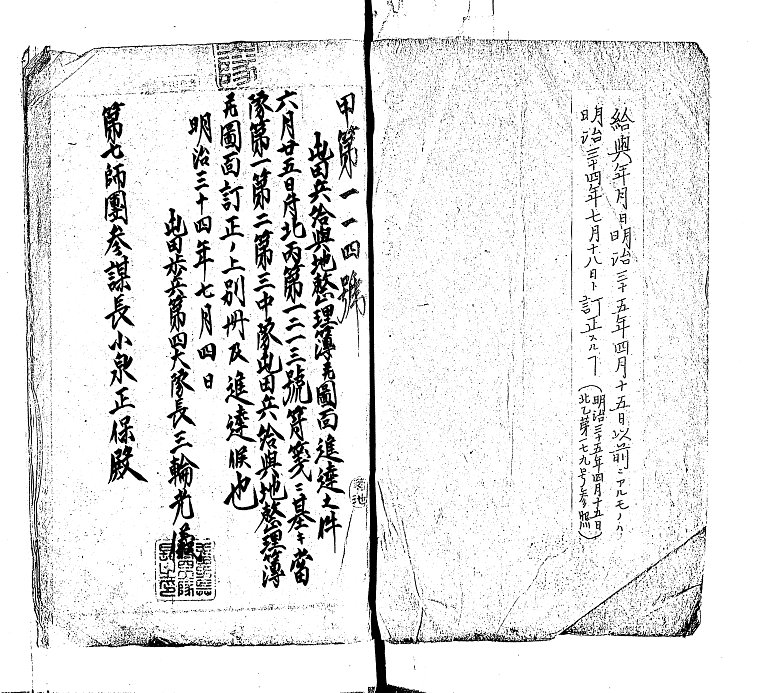 給與年月日明治三十五年四月十五日以前ニアルモノハ
明治三十四年七月十八日ト訂正スルヿ（明治三十五年四月十五日
北乙第一七九号参照）
甲第一一四號
屯田兵給與地整理簿並圖面進達之件
六月廿五日付北丙第一三一三號符箋ニ基キ當
隊第一第二第三中隊屯田兵給與地整理簿
並圖面訂正ノ上別冊及進達候也
明治三十四年七月四日
屯田歩兵第四大隊長三輪光儀
第七師團参謀長小泉正保殿
菊池